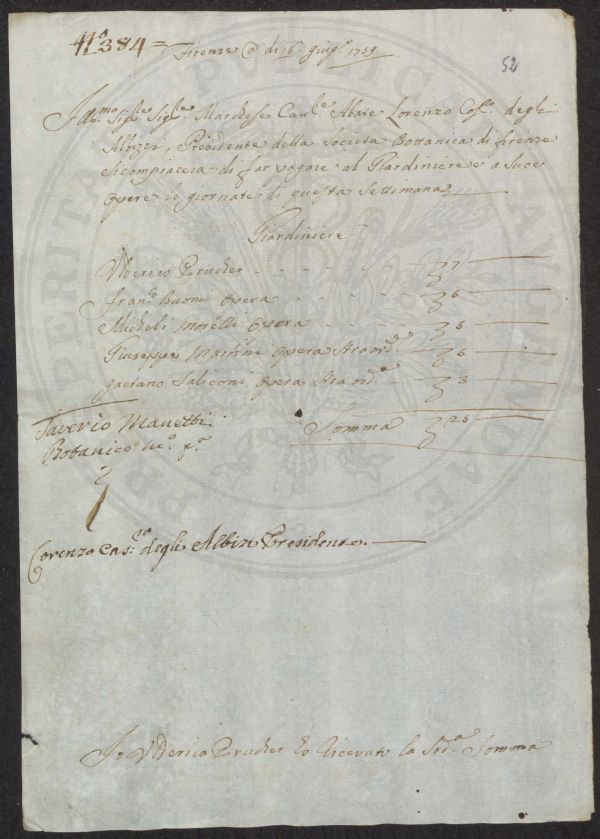 N.º 384 =
Firenze @ di 16 giug.º 1759
52
Ill.mo Sig.re Sig.re Marchese Cav.re Abate Lorenzo degli
Albizzi, Presidente della Societa Bottanica di firenze
si compiacera di far pagare al Giardiniere e a sue
opere le giornate di questa Settimana
Giardiniere
Ulderico Prucher - - - - - 7
Fran.º Buoni opera - - - - 6
Micheli Morelli opera - - -
Giuseppe Martini opera straord.ª -
gaetano Saliconi opera straord.ª - 3
Saverio Manetti
Botanico m.º p.ª
Somma
Lorenzo Gas.ro degli Albizi Presidente.
Io Ulderico Prucher ho ricevuto la Sud.ª Somma
PERITA
PUBLICA